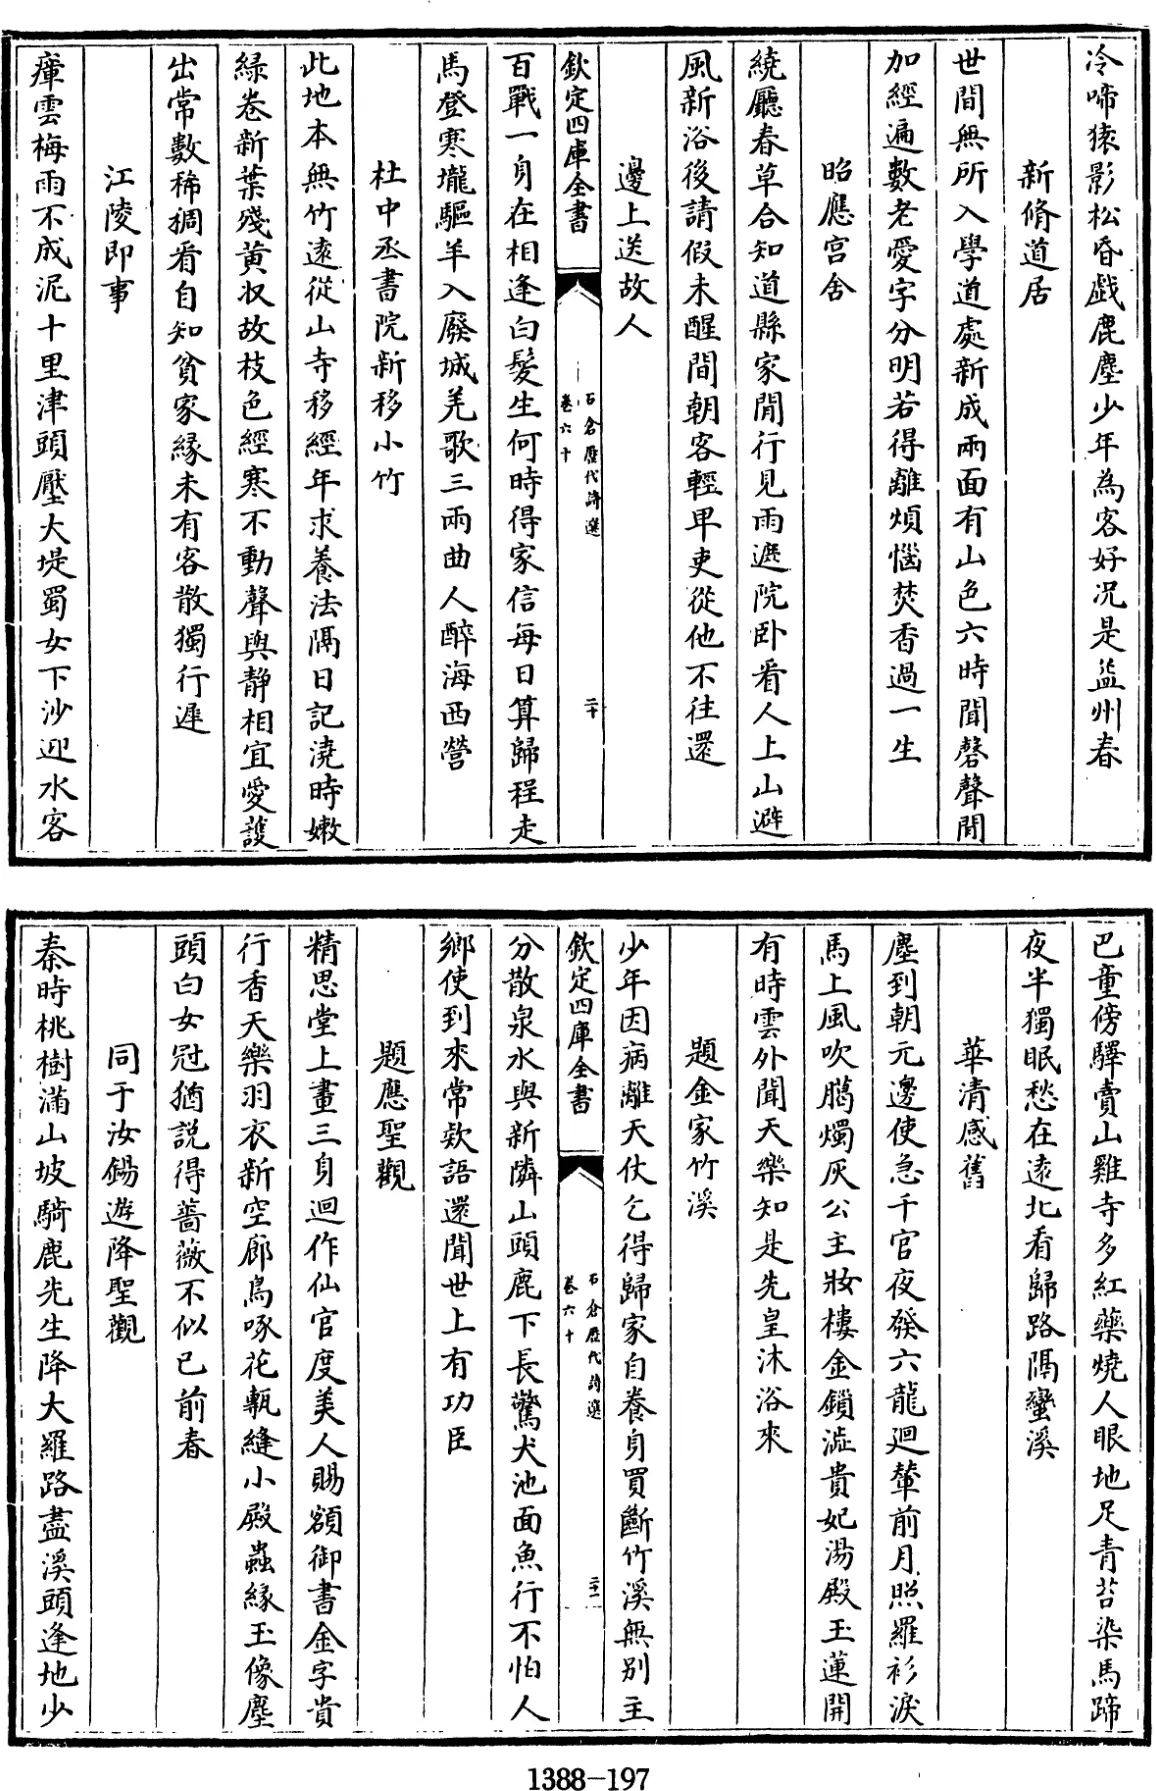 冷啼猿影松昏戲鹿塵少年為客好况是益州春
新脩道居
世間無所入學道處新成兩面有山色六時聞磬聲閒
加經遍數老愛字分明若得離煩惱焚香過一生
昭應宫舍
繞廳春草合知道縣家閒行見雨遮院卧看人上山避
風新浴後請假未醒間朝客輕卑吏從他不往還
邊上送故人
欽定四庫全書
石倉歷代詩選
卷六十
二十
百戰一身在相逢白髮生何時得家信每日算歸程走
馬登寒壠驅羊入廢城羌歌三兩曲人醉海西營
杜中丞書院新移小竹
此地本無竹遠從山寺移經年求養法隔日記澆時嫩
緑卷新葉殘黄収故枝色經寒不動聲與靜相宜愛護
出常數稀稠看自知貧家緣未有客散獨行遲
江陵即事
瘴雲梅雨不成泥十里津頭壓大堤蜀女下沙迎水客
巴童傍驛賣山雞寺多紅藥燒人眼地足青苔染馬蹄
夜半獨眠愁在遠北看歸路隔蠻溪
華清感舊
塵到朝元邊使急千官夜發六龍迴輦前月照羅衫淚
馬上風吹臈燭灰公主妝樓金鎖澁貴妃湯殿玉蓮開
有時雲外聞天樂知是先皇沐浴來
題金家竹溪
少年因病離天仗乞得歸家自養身買斷竹溪無别主
欽定四庫全書
石倉歷代詩選
卷六十
二十一
分散泉水與新隣山頭鹿下長驚犬池面魚行不怕人
鄉使到來常欵語還聞世上有功臣
題應聖觀
精思堂上畫三身迴作仙官度美人賜額御書金字貴
行香天樂羽衣新空廊鳥啄花甎縫小殿蟲緣玉像塵
頭白女冠猶説得薔薇不似已前春
同于汝錫遊降聖觀
秦時桃樹滿山坡騎鹿先生降大羅路盡溪頭逢地少
1388-197